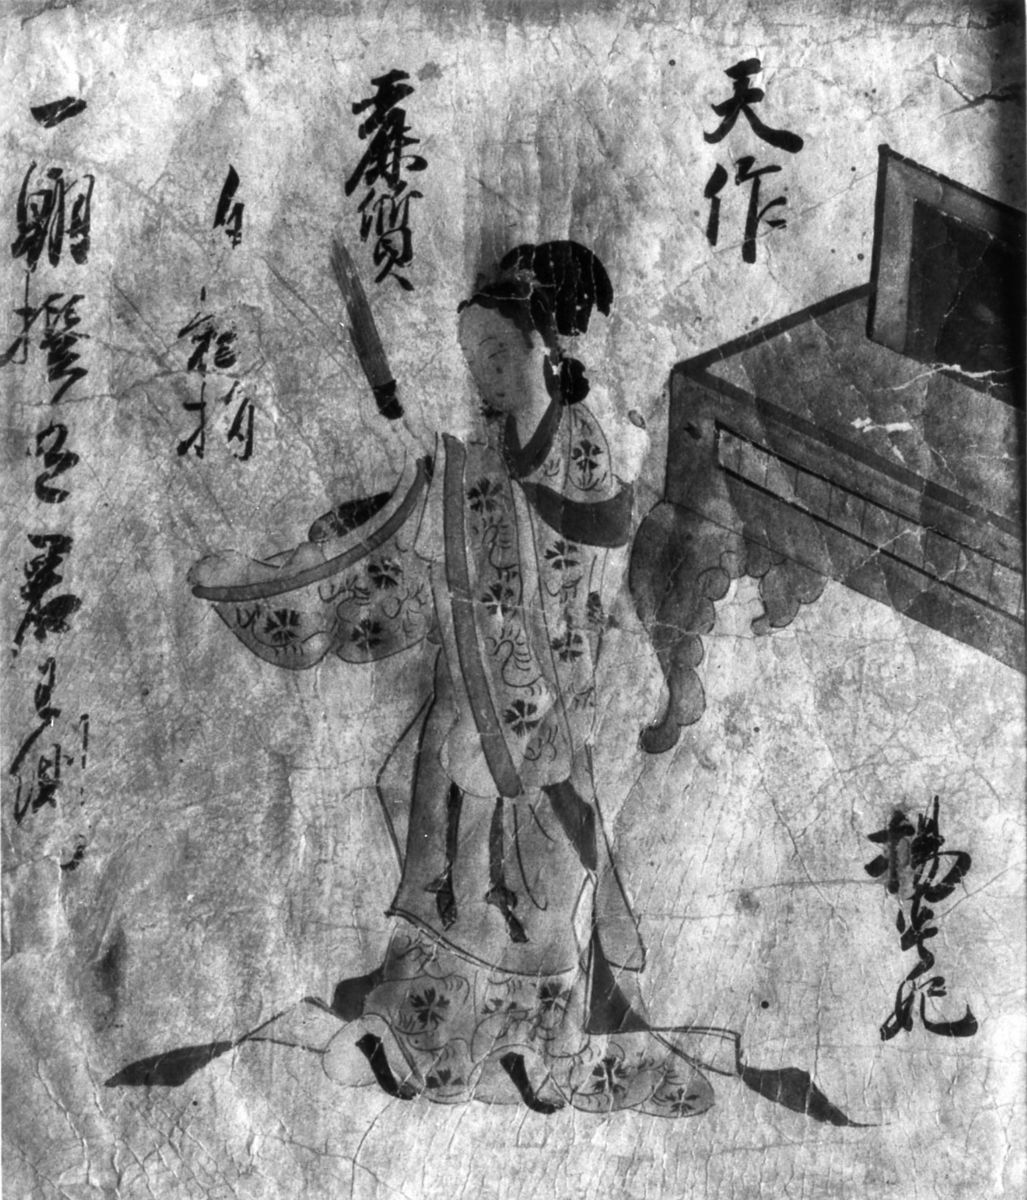 楊貴妃
天作
麗質
自難
一朝撰在君王側